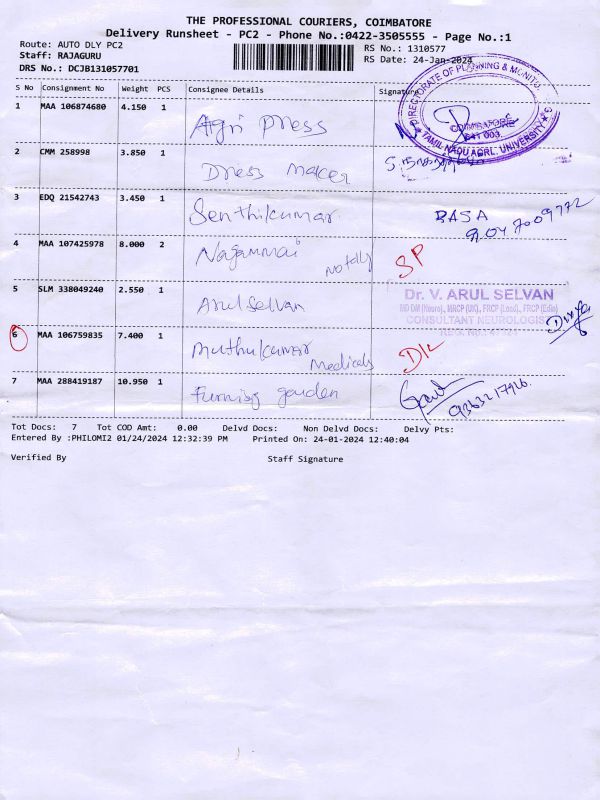 THE PROFESSIONAL COURIERS, COIMBATORE
Delivery Runsheet - PC2 - Phone No.:0422-3505555 - Page No.:1
Route: AUTO DLY PC2
RS No.: 1310577
Staff: RAJAGURU
RS Date: 24-Jan-2024
DRS No.: DCJB131057701
S No Consignment No Weight PCS Consignee Details Signature
DIRECTORATE OF PLANNING & MONITO
COIMBATORE
641 003.
TAMIL NADU AGRL. UNIVERSITY
1 MAA 106874680 4.150 1 Agri Press
2 CMM 258998 3.850 1 Dress Maker
3 EDQ 21542743 3.450 1 Senthilkumar BASA
4 MAA 107425978 8.000 2 Nagammai SP
5 SLM 338049240 2.550 1 Arul Selvan
Dr. V. ARUL SELVAN
MD DM (Neuro)., MRCP (UK)., FRCP (Lond)., FRCP (Edin)
CONSULTANT NEUROLOGIST
6 MAA 106759835 7.400 1 Muthulkumar Medicals
7 MAA 288419187 10.950 1 garden
9363217926.
Tot Docs: 7 Tot COD Amt: 0.00 Delvd Docs: Non Delvd Docs: Delvy Pts:
Entered By :PHILOMI2 01/24/2024 12:32:39 PM Printed On: 24-01-2024 12:40:04
Verified By Staff Signature